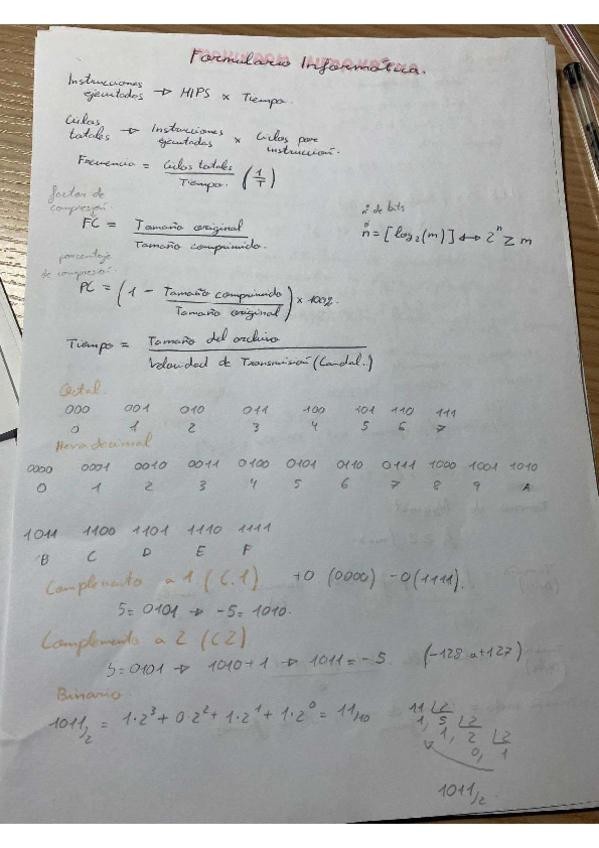 Formulario Informática.
Instrucciones ejecutadas → MIPS × Tiempo.
Ciclos totales → Instrucciones ejecutadas × Ciclos por instrucción.
Frecuencia = Ciclos totales / Tiempo. (1/T)
factor de compresión.
FC = Tamaño original / Tamaño comprimido.
nº de bits
n = [log₂(m)] ↔ 2ⁿ ≥ m
porcentaje de compresión.
PC = (1 - Tamaño comprimido / Tamaño original) × 100%.
Tiempo = Tamaño del archivo / Velocidad de Transmisión (Caudal..)
Octal.
000 001 010 011 100 101 110 111
0 1 2 3 4 5 6 7
Hexadecimal
0000 0001 0010 0011 0100 0101 0110 0111 1000 1001 1010
0 1 2 3 4 5 6 7 8 9 A
1011 1100 1101 1110 1111
B C D E F
Complemento a 1 (C.1) +0 (0000) -0 (1111).
5 = 0101 → -5 = 1010.
Complemento a 2 (C2)
5 = 0101 → 1010+1 → 1011 = -5. (-128 a +127)
Binario
1011/2 = 1·2³ + 0·2² + 1·2¹ + 1·2⁰ = 11/10
11 |2
1, 5 |2
1, 2 |2
0, 1
1011/2.